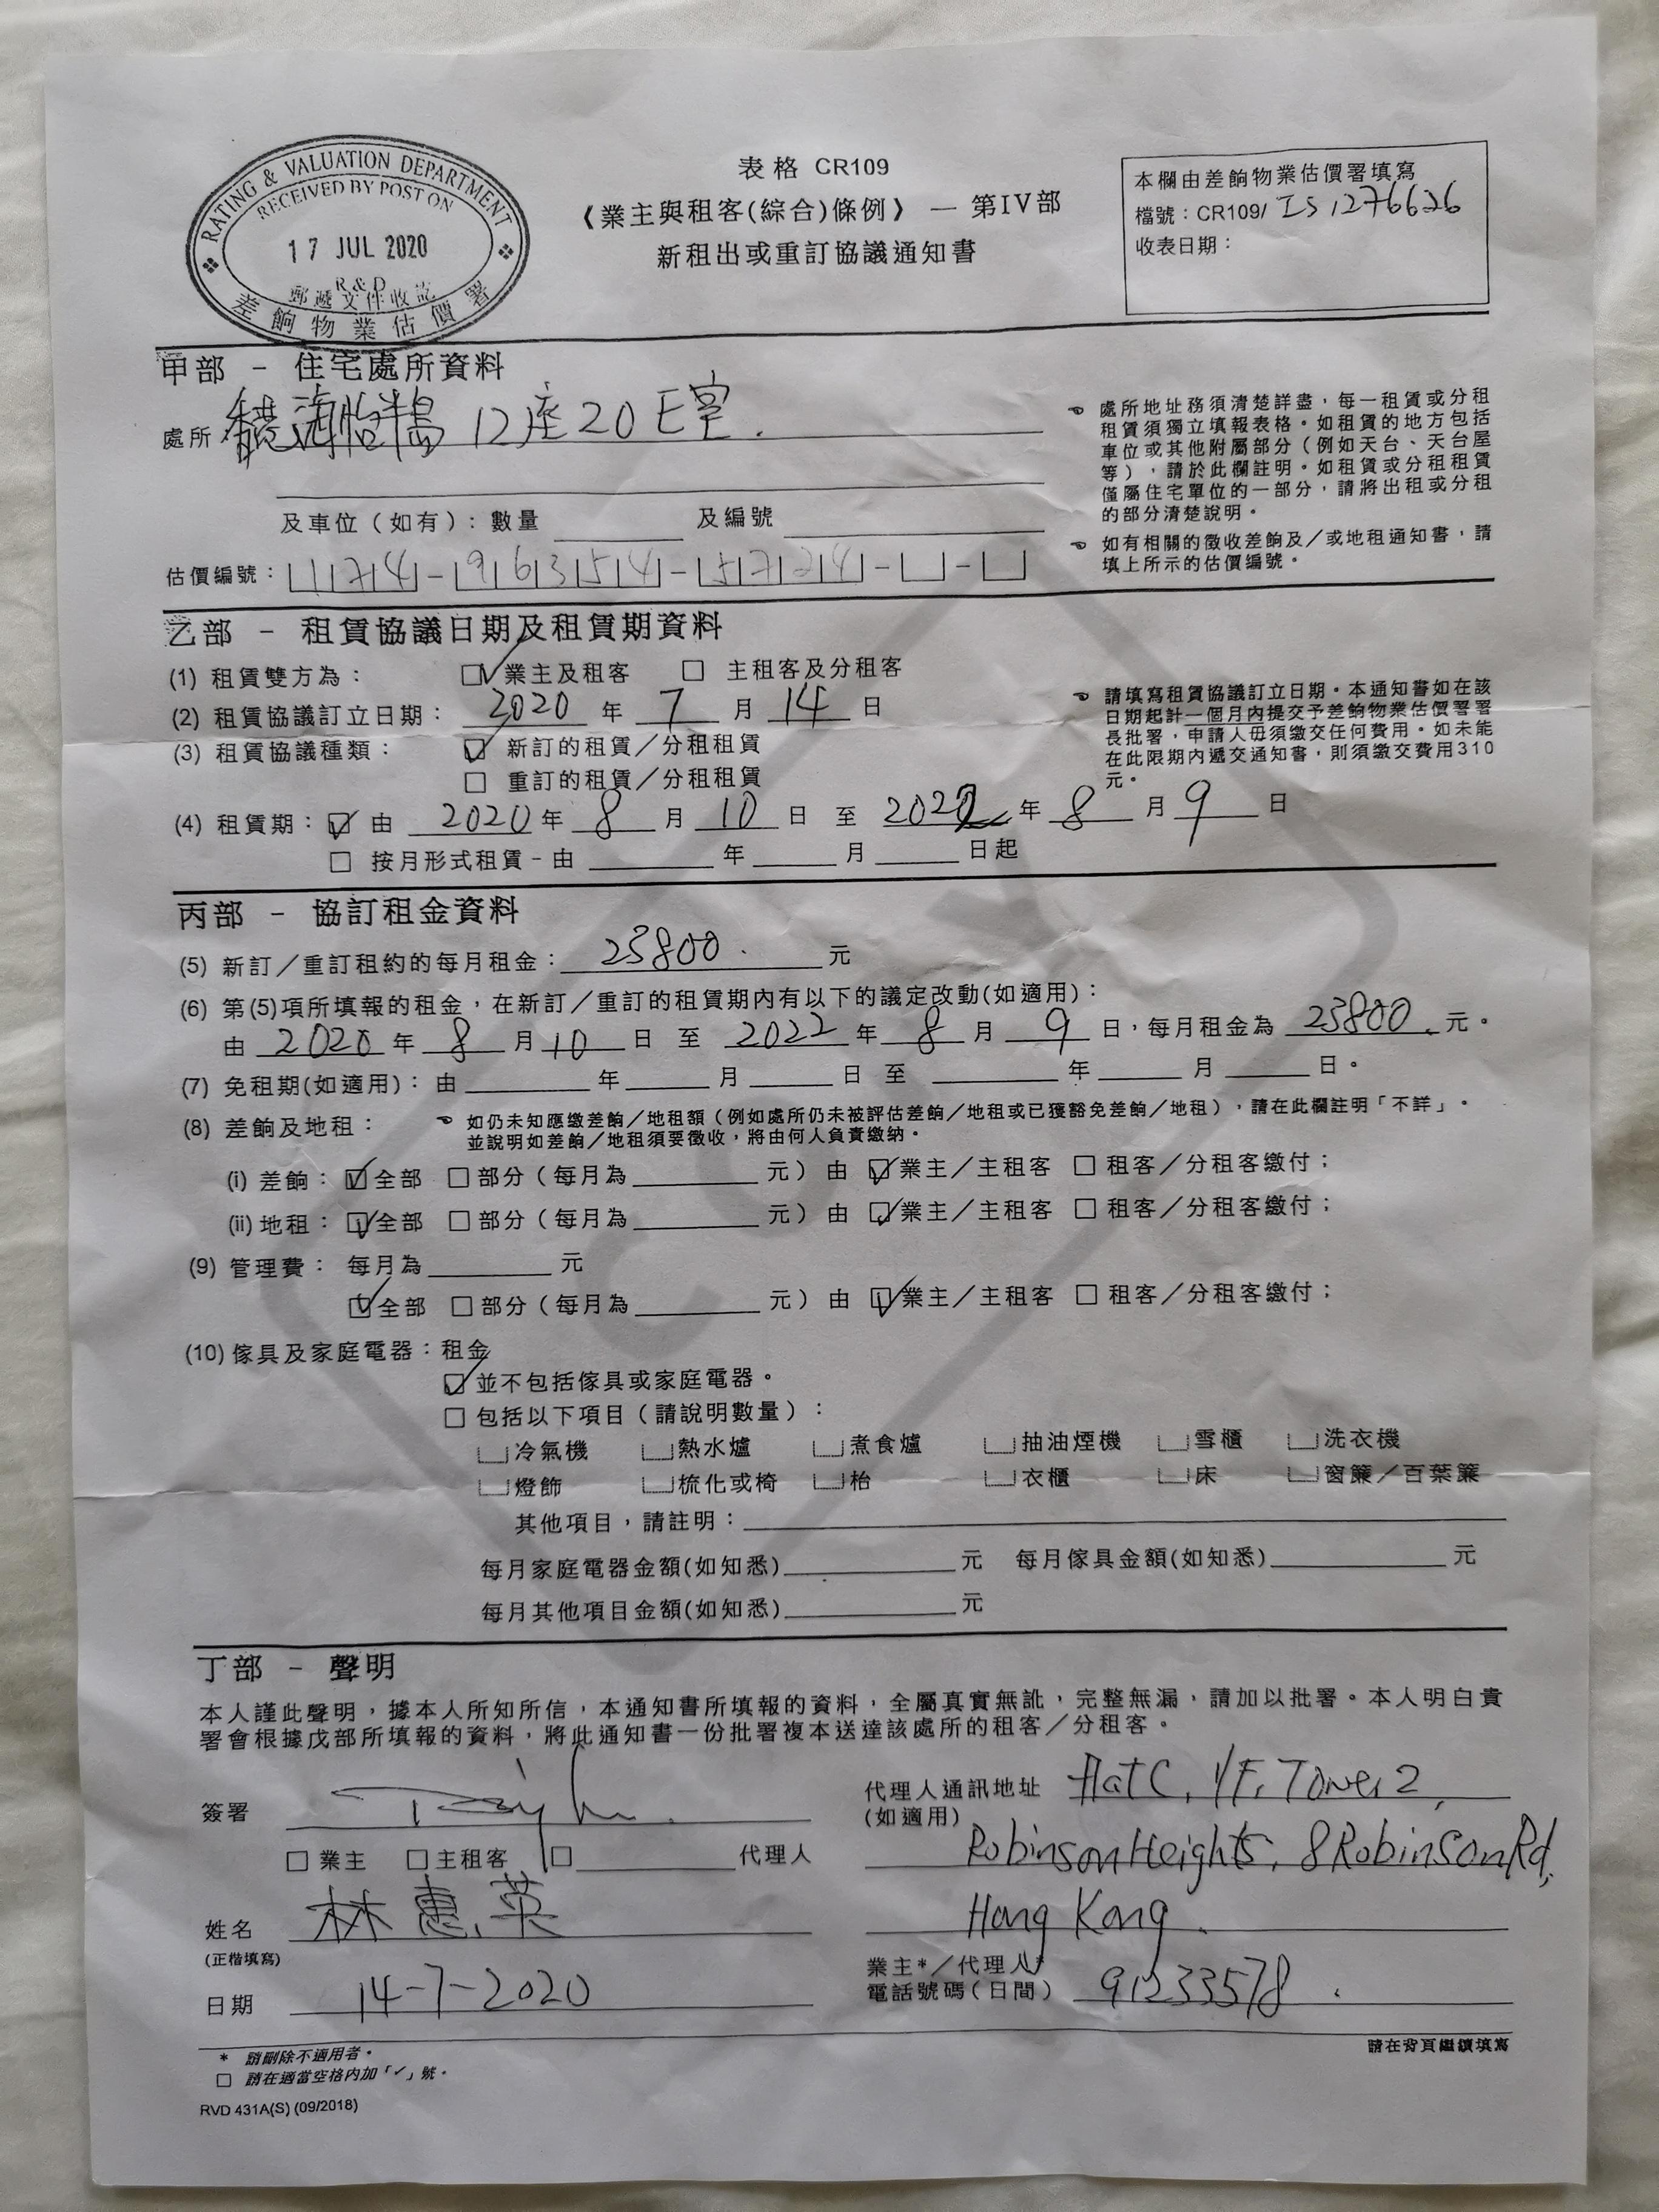 RATING & VALUATION DEPARTMENT
RECEIVED BY POST ON
17 JUL 2020
R&D
郵遞文件收訖
差餉物業估價署
表格 CR109
《業主與租客(綜合)條例》 — 第IV部
新租出或重訂協議通知書
本欄由差餉物業估價署填寫
檔號：CR109/ IS 1276626
收表日期：
甲部 - 住宅處所資料
處所 香港海怡半島 12座20E室.
及車位（如有）：數量 及編號
估價編號： 174-96354-5724- -
處所地址務須清楚詳盡，每一租賃或分租
租賃須獨立填報表格。如租賃的地方包括
車位或其他附屬部分（例如天台、天台屋
等），請於此欄註明。如租賃或分租租賃
僅屬住宅單位的一部分，請將出租或分租
的部分清楚說明。
如有相關的徵收差餉及／或地租通知書，請
填上所示的估價編號。
乙部 - 租賃協議日期及租賃期資料
(1) 租賃雙方為： ☑ 業主及租客 □ 主租客及分租客
(2) 租賃協議訂立日期： 2020 年 7 月 14 日
(3) 租賃協議種類： ☑ 新訂的租賃／分租租賃
□ 重訂的租賃／分租租賃
請填寫租賃協議訂立日期。本通知書如在該
日期起計一個月內提交予差餉物業估價署署
長批署，申請人毋須繳交任何費用。如未能
在此限期內遞交通知書，則須繳交費用310
元。
(4) 租賃期： ☑ 由 2020 年 8 月 10 日 至 2022 年 8 月 9 日
□ 按月形式租賃 - 由 年 月 日起
丙部 - 協訂租金資料
(5) 新訂／重訂租約的每月租金： 23800 元
(6) 第(5)項所填報的租金，在新訂／重訂的租賃期內有以下的議定改動(如適用)：
由 2020 年 8 月 10 日 至 2022 年 8 月 9 日，每月租金為 23800 元。
(7) 免租期(如適用)： 由 年 月 日 至 年 月 日。
(8) 差餉及地租： 如仍未知應繳差餉／地租額（例如處所仍未被評估差餉／地租或已獲豁免差餉／地租），請在此欄註明「不詳」。
並說明如差餉／地租須要徵收，將由何人負責繳納。
(i) 差餉： ☑ 全部 □ 部分（每月為 元） 由 ☑ 業主／主租客 □ 租客／分租客繳付；
(ii) 地租： ☑ 全部 □ 部分（每月為 元） 由 ☑ 業主／主租客 □ 租客／分租客繳付；
(9) 管理費： 每月為 元
☑ 全部 □ 部分（每月為 元） 由 ☑ 業主／主租客 □ 租客／分租客繳付；
(10) 傢具及家庭電器：租金
☑ 並不包括傢具或家庭電器。
□ 包括以下項目（請說明數量）：
冷氣機 熱水爐 煮食爐 抽油煙機 雪櫃 洗衣機
燈飾 梳化或椅 枱 衣櫃 床 窗簾／百葉簾
其他項目，請註明：
每月家庭電器金額(如知悉) 元 每月傢具金額(如知悉) 元
每月其他項目金額(如知悉) 元
丁部 - 聲明
本人謹此聲明，據本人所知所信，本通知書所填報的資料，全屬真實無訛，完整無漏，請加以批署。本人明白貴
署會根據戊部所填報的資料，將此通知書一份批署複本送達該處所的租客／分租客。
簽署
□ 業主 □ 主租客 □ 代理人
姓名 林惠英
(正楷填寫)
日期 14-7-2020
代理人通訊地址 Flat C, 1/F, Tower 2,
(如適用)
Robinson Heights, 8 Robinson Rd,
Hong Kong.
業主*／代理人*
電話號碼(日間) 91233578
請在背頁繼續填寫
* 請刪除不適用者。
□ 請在適當空格內加「✓」號。
RVD 431A(S) (09/2018)